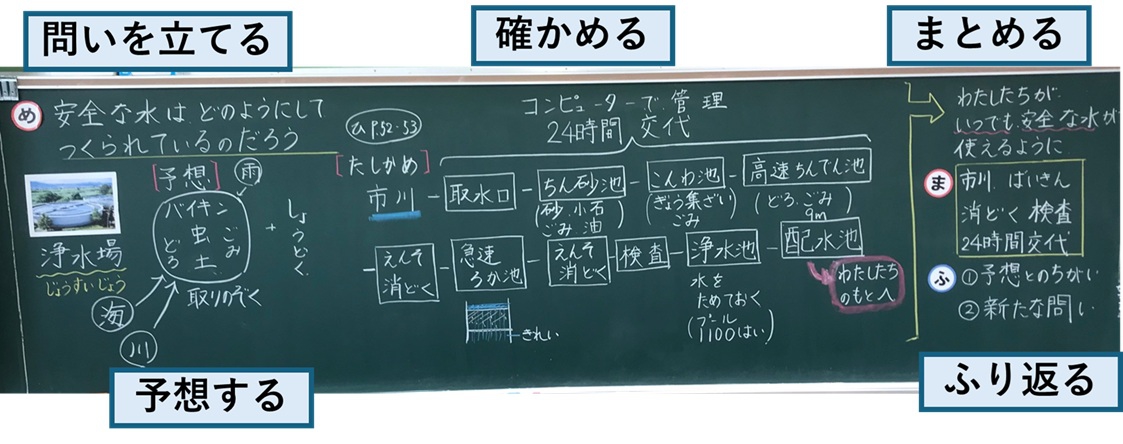 問いを立てる
確かめる
まとめる
め 安全な水は どのようにして
つくられているのだろう
[予想]
雨
バイキン
虫
ごみ
どろ
土
+
しょうどく
浄水場
じょうすいじょう
取りのぞく
海
川
予想する
P.52・53
コンピューターで管理
24時間 交代
[たしかめ]
市川
取水口
ちん砂池
(砂.小石
ごみ 油)
こんわ池
(ぎょう集ざい
ごみ)
高速ちんでん池
(どろ.ごみ
9m)
えんそ
消どく
急速
ろか池
きれい
えんそ
消どく
検査
浄水池
水を
ためておく
(プール
1100はい)
配水池
わたしたち
のもとへ
わたしたちが
いつでも安全な水が
使えるように
ま 市川 ばいきん
消どく 検査
24時間交代
ふ ①予想とのちがい
②新たな問い
ふり返る